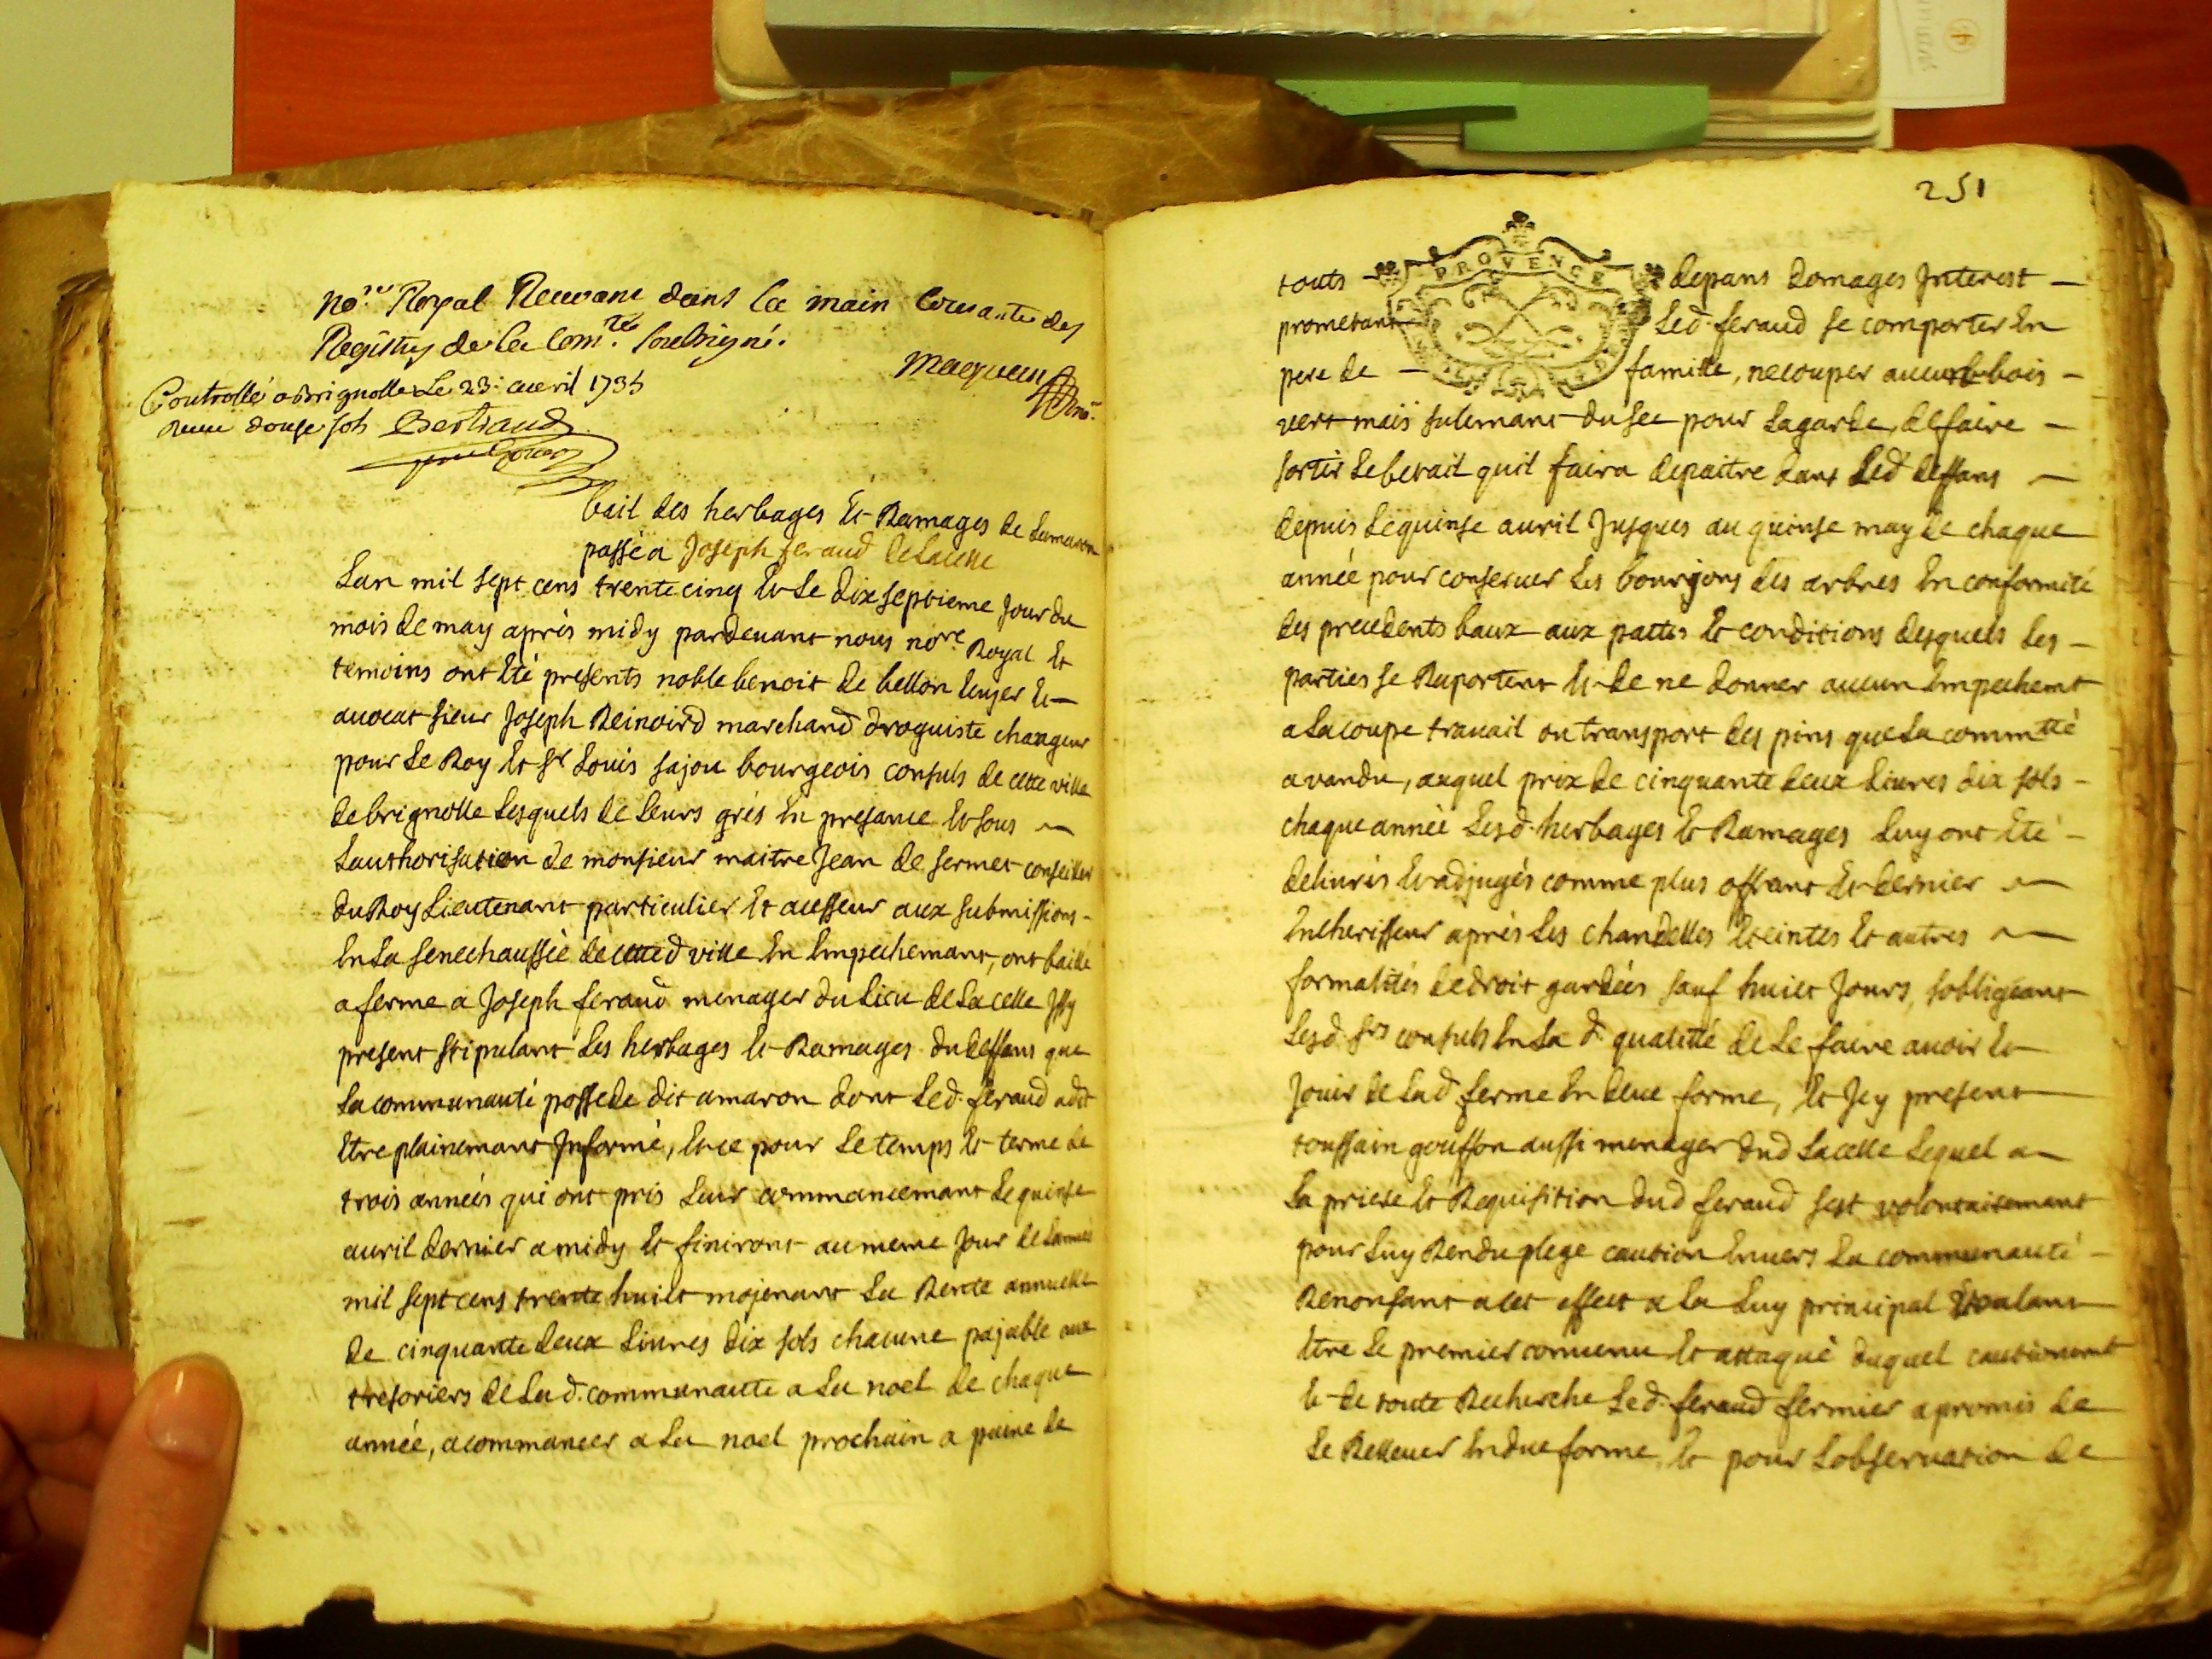 no.re Royal Recevant dans la main courante des
Registres de la Com.té soubsigné.
Maquan
no.re
Controllé a Brignolle Le 23: avril 1735
Receu douse sols Bertrand
bail des herbages Et Ramages de Lamaron
passé a Joseph feraud de Lacelle
Lan mil sept cens trente cinq Et Le dix septieme Jour du
mois de may après midy pardevant nous no.re Royal Et
temoins ont Eté presents noble benoit de bellon Ecuyer Et
avocat sieur Joseph Reinoird marchand droguiste changeur
pour Le Roy Et Sr Louis sajou bourgeois consuls de cette ville
de brignolle Lesquels de Leurs grés En presance Et sous
Lauthorisation de monsieur maitre Jean de fermet conseiller
du Roy Lieutenant particulier Et acesseur aux submissions
En La senechaussée de cetted ville En Empechemant, ont baillé
a ferme a Joseph feraud menager du Lieu de Lacelle Jssy
present stipulant Les herbages Et Ramages du deffans que
La communauté possede dit amaron dont Led. feraud a dit
Etre plainemant Informé, Et ce pour Le temps Et terme de
trois années qui ont pris Leur commancemant Le quinse
auril dernier a midy Et finiront au meme Jour de Lannée
mil sept cens trente huict mojenant La Rente annuelle
de cinquante deux Liures dix sols chacune pajable aux
tresoriers de Lad. communaute a La noel de chaque
année, a commancer a La noel prochain a paine de
251
PROVENCE
touts depans domages Interest
prometant Led. feraud se comporter En
pere de famille, ne couper aucun bois
vert mais sulemant du sec pour Lagarde, de faire
sortir Le betail quil faira depaitre dans Led deffans
depuis Le quinse auril Jusques au quinse may de chaque
année pour conseruer Les bourgons des arbres En conformité
des precedents baux aux pattes Et conditions desquels Les
parties se Raportent Et de ne donner aucun Empechemt
a La coupe trauail ou transport des pins que La commtté
a vandu, auquel prix de cinquante deux Liures dix sols
chaque année Lesd. herbages Et Ramages Luy ont Eté
deliurés Et adjugés comme plus offrant Et dernier
Encherisseur aprés Les chandelles Eteintes Et autres
formalités de droit gardées sauf huict Jours, sobligeant
Lesd. Srs consuls En La d. qualitté de Le faire auoir Et
Jouir de Lad ferme En deue forme, Et Jcy present
toussain gouffon aussi menager dud Lacelle Lequel a
La priere Et Requisition dud feraud sest volontairemant
pour Luy Rendu plege caution Enuers La communauté
Renonsant a cet effect a La Luy principal Et valant
Etre Le premier conuenu Et attaqué duquel cautionemt
Et de toute Recherche Led. feraud fermier a promis de
Le Rellever En due forme, Et pour Lobseruation de